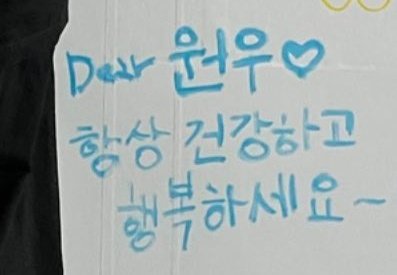 Dear 원우♡
항상 건강하고
행복하세요~